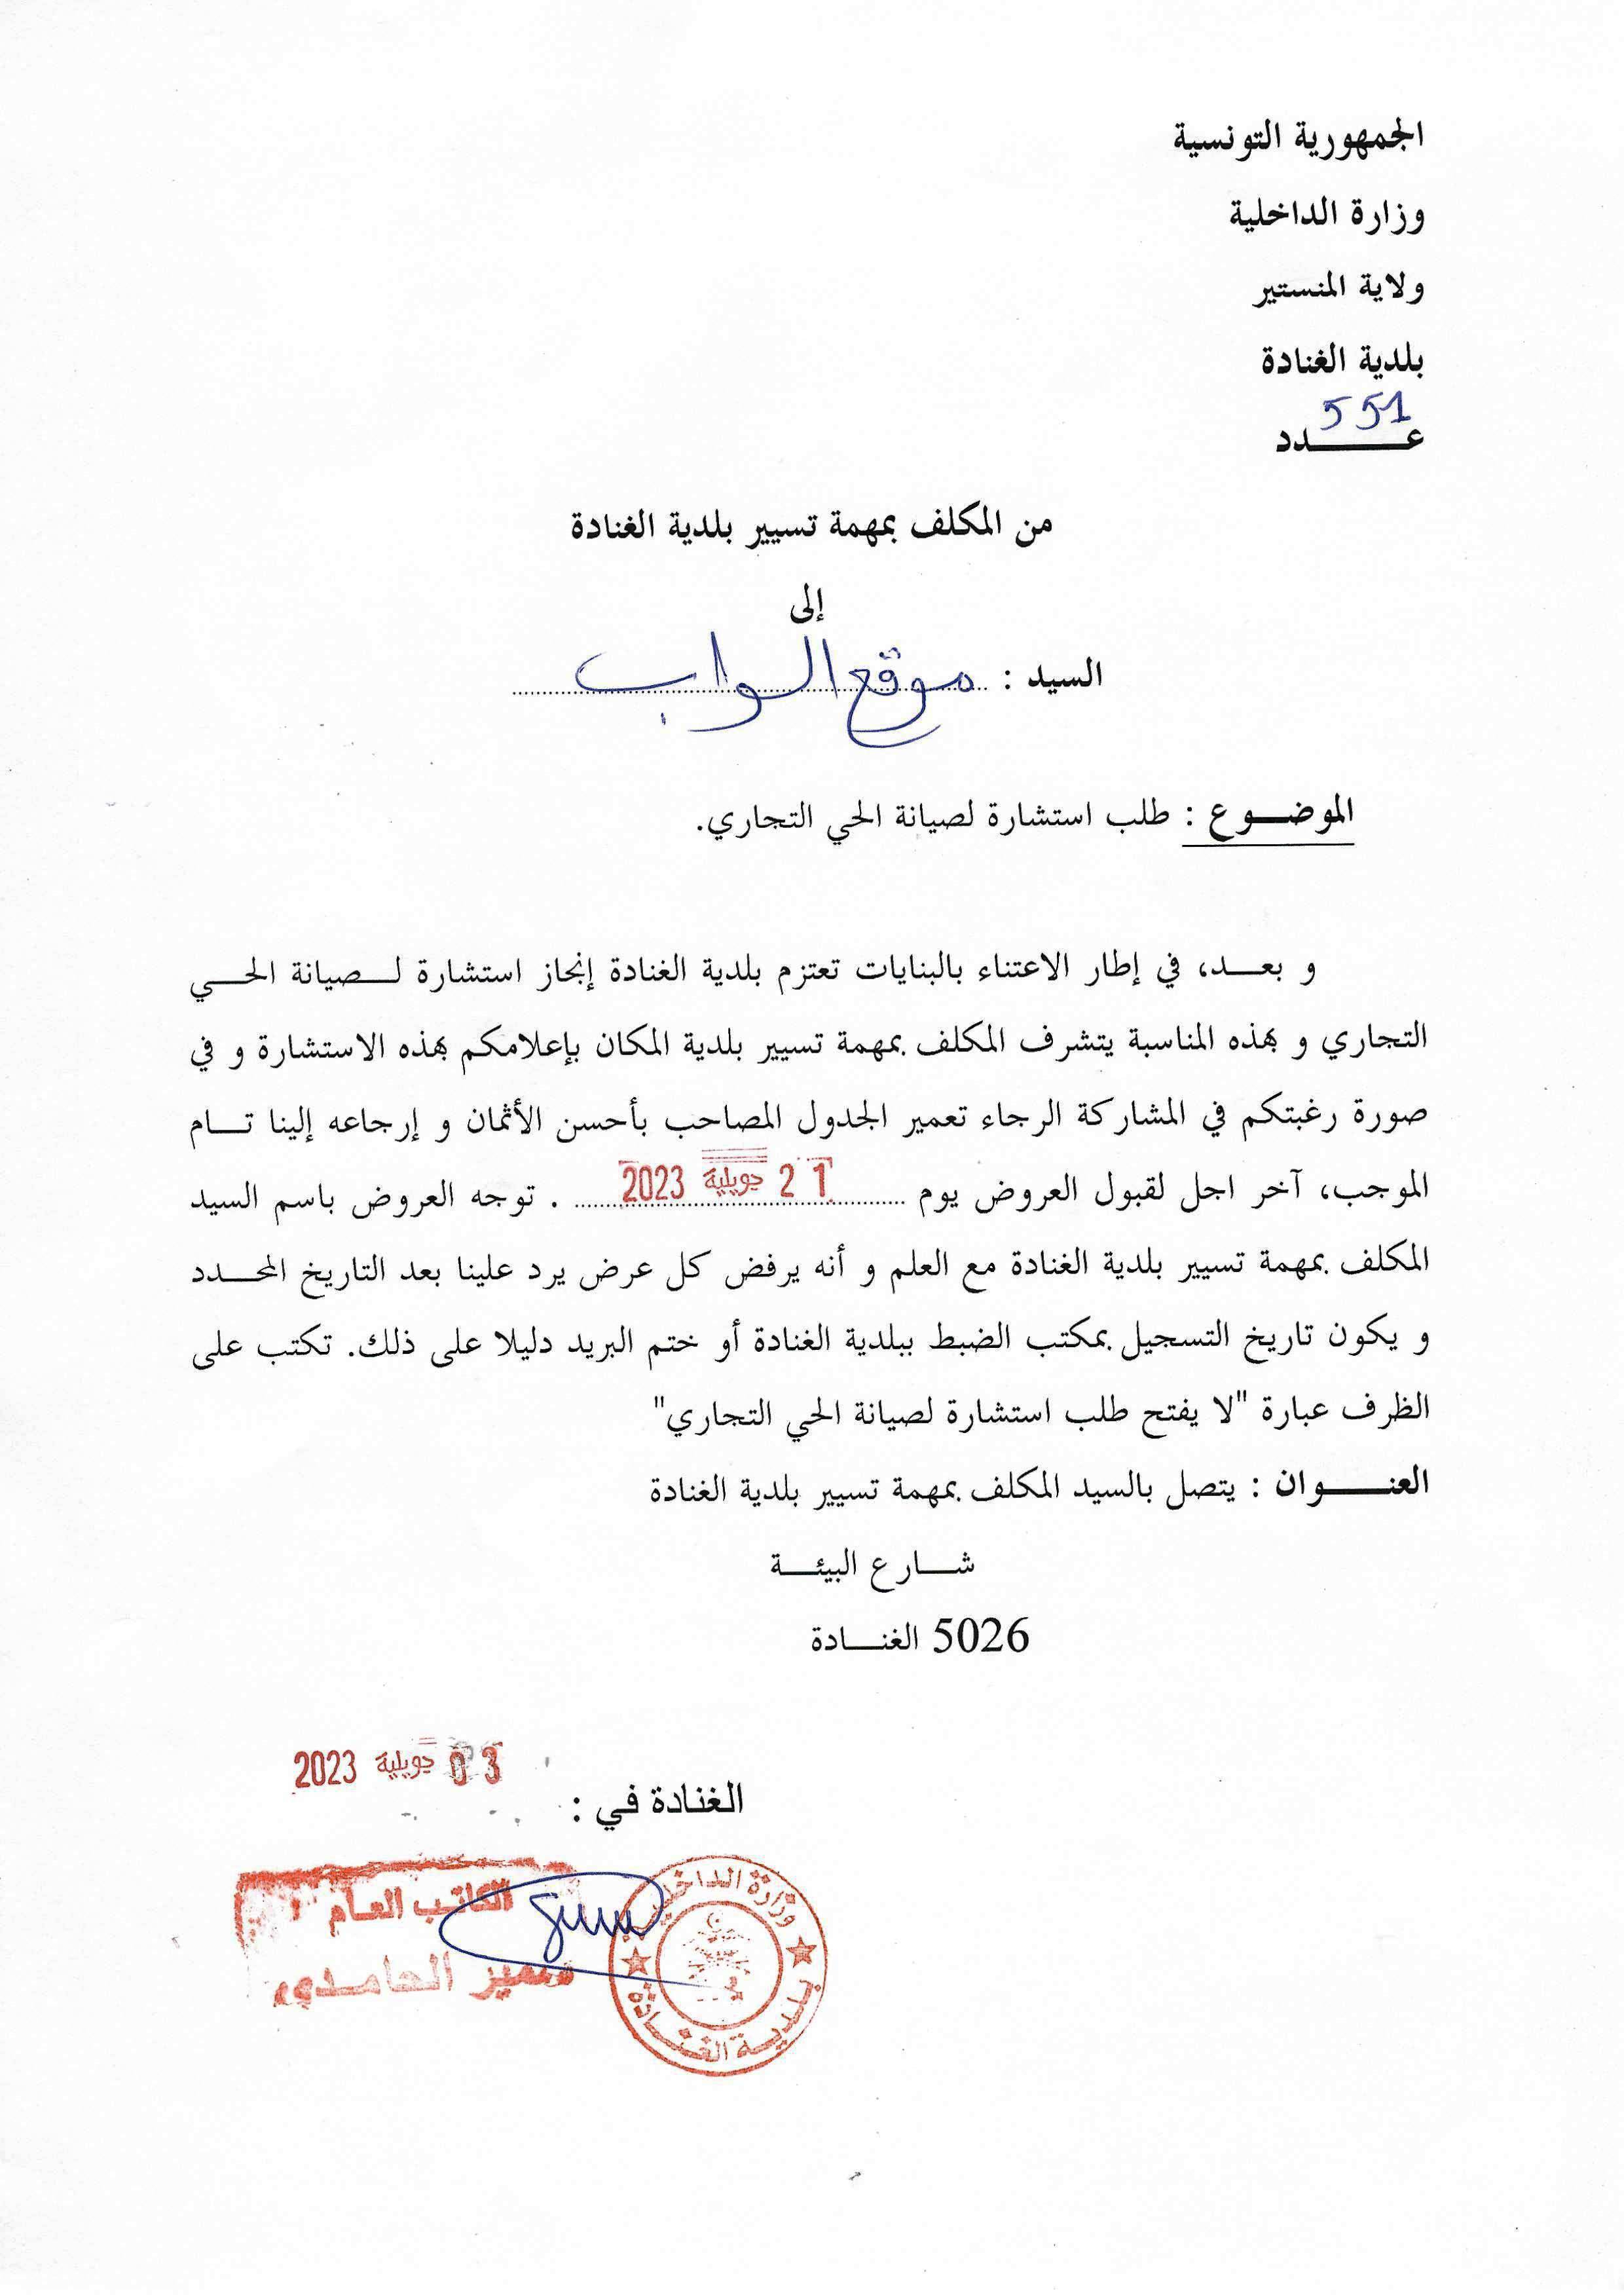 الجمهورية التونسية
وزارة الداخلية
ولاية المنستير
بلدية الغنادة
551
عـــــدد
من المكلف بمهمة تسيير بلدية الغنادة
إلى
السيد : موقع الواب
الموضـــوع : طلب استشارة لصيانة الحي التجاري.
و بعـــد، في إطار الاعتناء بالبنايات تعتزم بلدية الغنادة إنجاز استشارة لـــصيانة الحـــي
التجاري و بهذه المناسبة يتشرف المكلف بمهمة تسيير بلدية المكان بإعلامكم بهذه الاستشارة و في
صورة رغبتكم في المشاركة الرجاء تعمير الجدول المصاحب بأحسن الأثمان و إرجاعه إلينا تـــام
الموجب، آخر اجل لقبول العروض يوم 21 جويلية 2023 . توجه العروض باسم السيد
المكلف بمهمة تسيير بلدية الغنادة مع العلم و أنه يرفض كل عرض يرد علينا بعد التاريخ المحـــدد
و يكون تاريخ التسجيل بمكتب الضبط ببلدية الغنادة أو ختم البريد دليلا على ذلك. تكتب على
الظرف عبارة "لا يفتح طلب استشارة لصيانة الحي التجاري"
العنـــــوان : يتصل بالسيد المكلف بمهمة تسيير بلدية الغنادة
شـــارع البيئـــة
5026 الغنـــادة
03 جويلية 2023
الغنادة في :
وزارة الداخلية
الكاتب العام
الحامدي
بلدية الغنادة